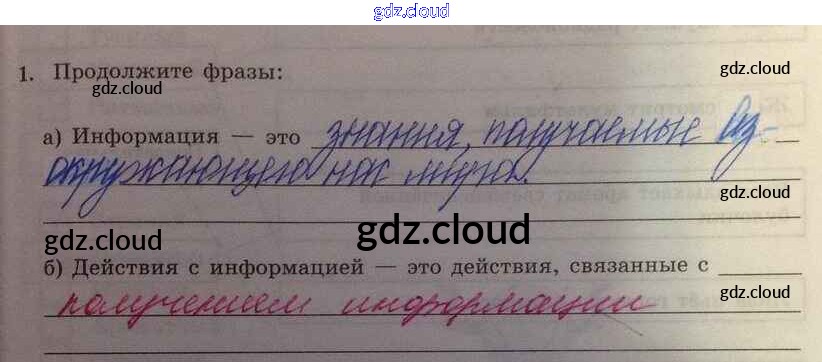 gdz.cloud
1. Продолжите фразы:
gdz.cloud
gdz.cloud
а) Информация — это знания, получаемые из
gdz.cloud
окружающего нас мира.
gdz.cloud
gdz.cloud
gdz.cloud
б) Действия с информацией — это действия, связанные с
получением информации
gdz.cloud